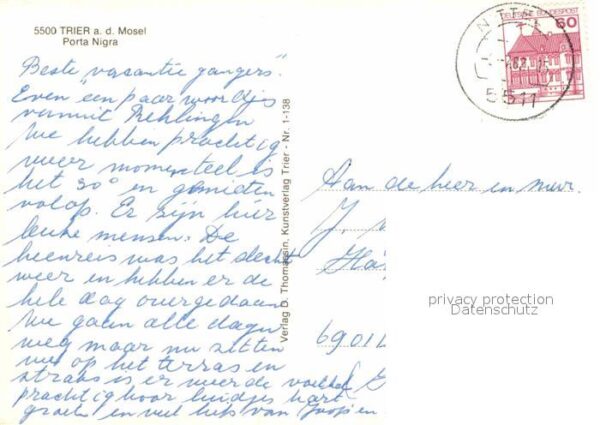 5500 TRIER a. d. Mosel
Porta Nigra
Beste vacantie gangers".
Even "een paar woordjes
vanuit Rehlingen
We hebben prachtig
weer momenteel is
het 30° en genieten
volop. Er zijn hier
leuke mensen. De
heenreis was het slecht
weer en hebben er de
hele dag overgedaan
We gaan alle dagen
weg maar nu zitten
we op het terras en
straks is er weer de
prachtig hoor luidjes hart
groeten en veel liefs van Joop en
Verlag D. Thomassin, Kunstverlag Trier - Nr. 1-138
DEUTSCHE BUNDESPOST
60
NITTEL
5511
Aan de heer en mevr.
J.
Ha
6901
privacy protection
Datenschutz